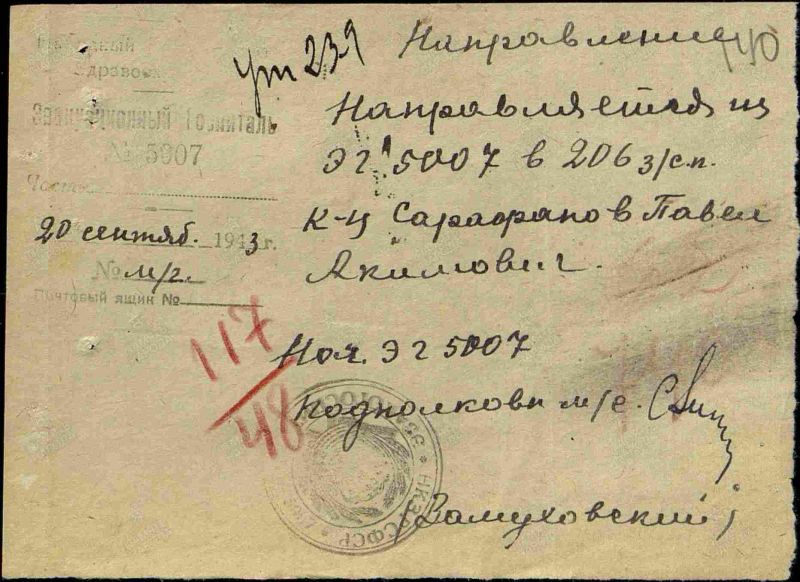 Здравоох
Эвакуационный Госпиталь
№ 5007
Часть
20 сентяб. 1943 г.
№ м/г.
Почтовый ящик №
Направление
Направляется из
ЭГ 5007 в 206 з/с.п.
к-ц Сарафанов Павел
Акимович.
117
48
Нач. ЭГ 5007
подполковн м/с.
(Замуховский)
НКЗ РСФСР